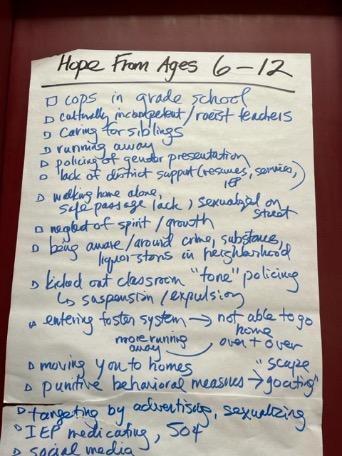 Hope From Ages 6-12
□ cops in grade school
□ culturally incompetent/racist teachers
□ caring for siblings
□ running away
□ policing of gender presentation
□ lack of district support (resumes, services,
IEP)
□ walking home alone,
safe passage lack, sexualized on
street
□ neglect of spirit/growth
□ being aware/around crime, substances,
liquor stores in neighborhood
□ kicked out classroom "tone" policing
↳ suspension/expulsion
□ entering foster system → not able to go
home
more running
away
over + over
□ moving you to homes
"scape
□ punitive behavioral measures → goating"
□ targeting by advertising, sexualizing
□ IEP medicating, 504
□ social media